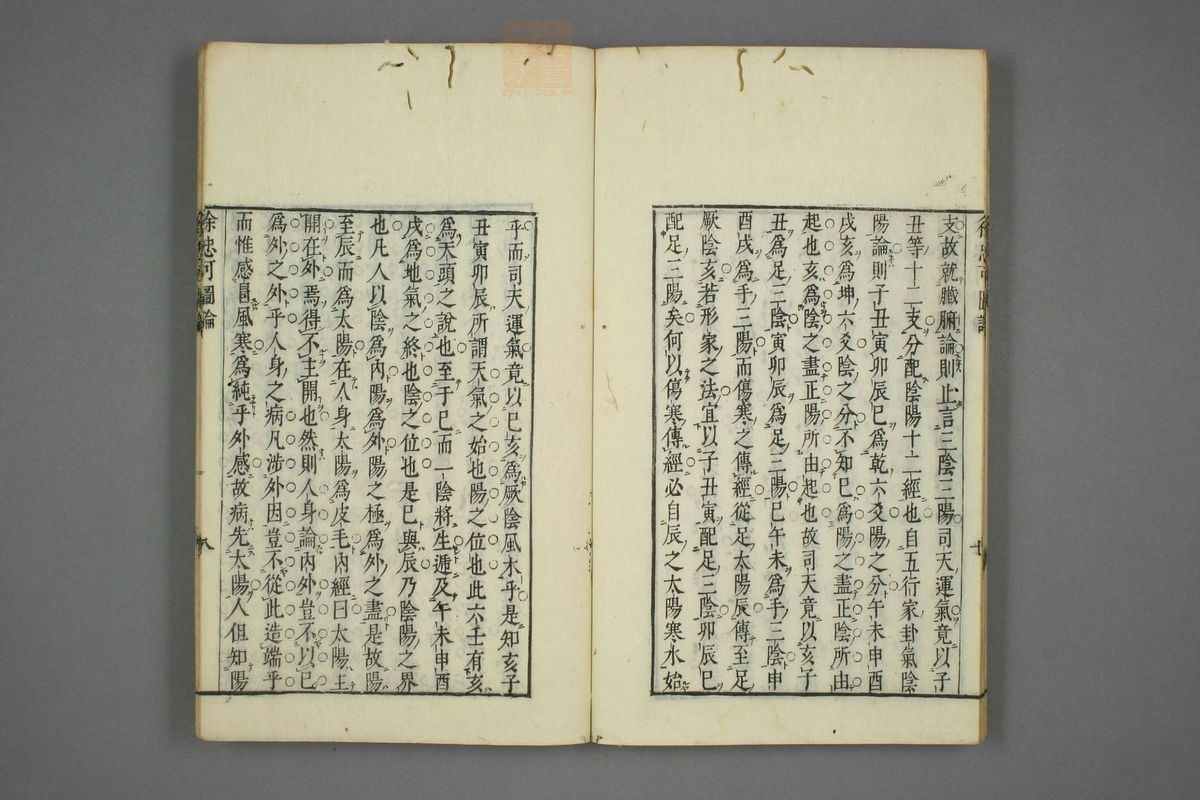 支故就臟腑論則止言三陰三陽司天運氣竟以子
丑等十二支分配陰陽十二經也自五行家卦氣陰
陽論則子丑寅卯辰巳為乾六爻陽之分午未申酉
戌亥為坤六爻陰之分不知巳為陽之盡正陰所由
起也亥為陰之盡正陽所由起也故司天竟以亥子
丑為足三陰寅卯辰為足三陽巳午未為手三陰申
酉戌為手三陽而傷寒之傳經從足太陽辰傳至足
厥陰亥若形家之法宜以子丑寅配足三陰卯辰巳
配足三陽矣何以傷寒傳經必自辰之太陽寒水始
乎而司天運氣竟以巳亥為厥陰風木乎是知亥子
丑寅卯辰所謂天氣之始也陽之位也此六壬有亥
為天頭之說也至于巳而一陰將生遁及午未申酉
戌為地氣之終也陰之位也是巳與辰乃陰陽之界
也凡人以陰為內陽為外陽之極為外之盡是故陽
至辰而為太陽在人身太陽為皮毛內經曰太陽主
開在外焉得不主開也然則人身論內外豈不以巳
為外之外乎人身之病凡涉外因豈不從此造端乎
而惟感冒風寒為純乎外感故病先太陽人但知陽
徐忠可圖論
八
zysj.com.cn